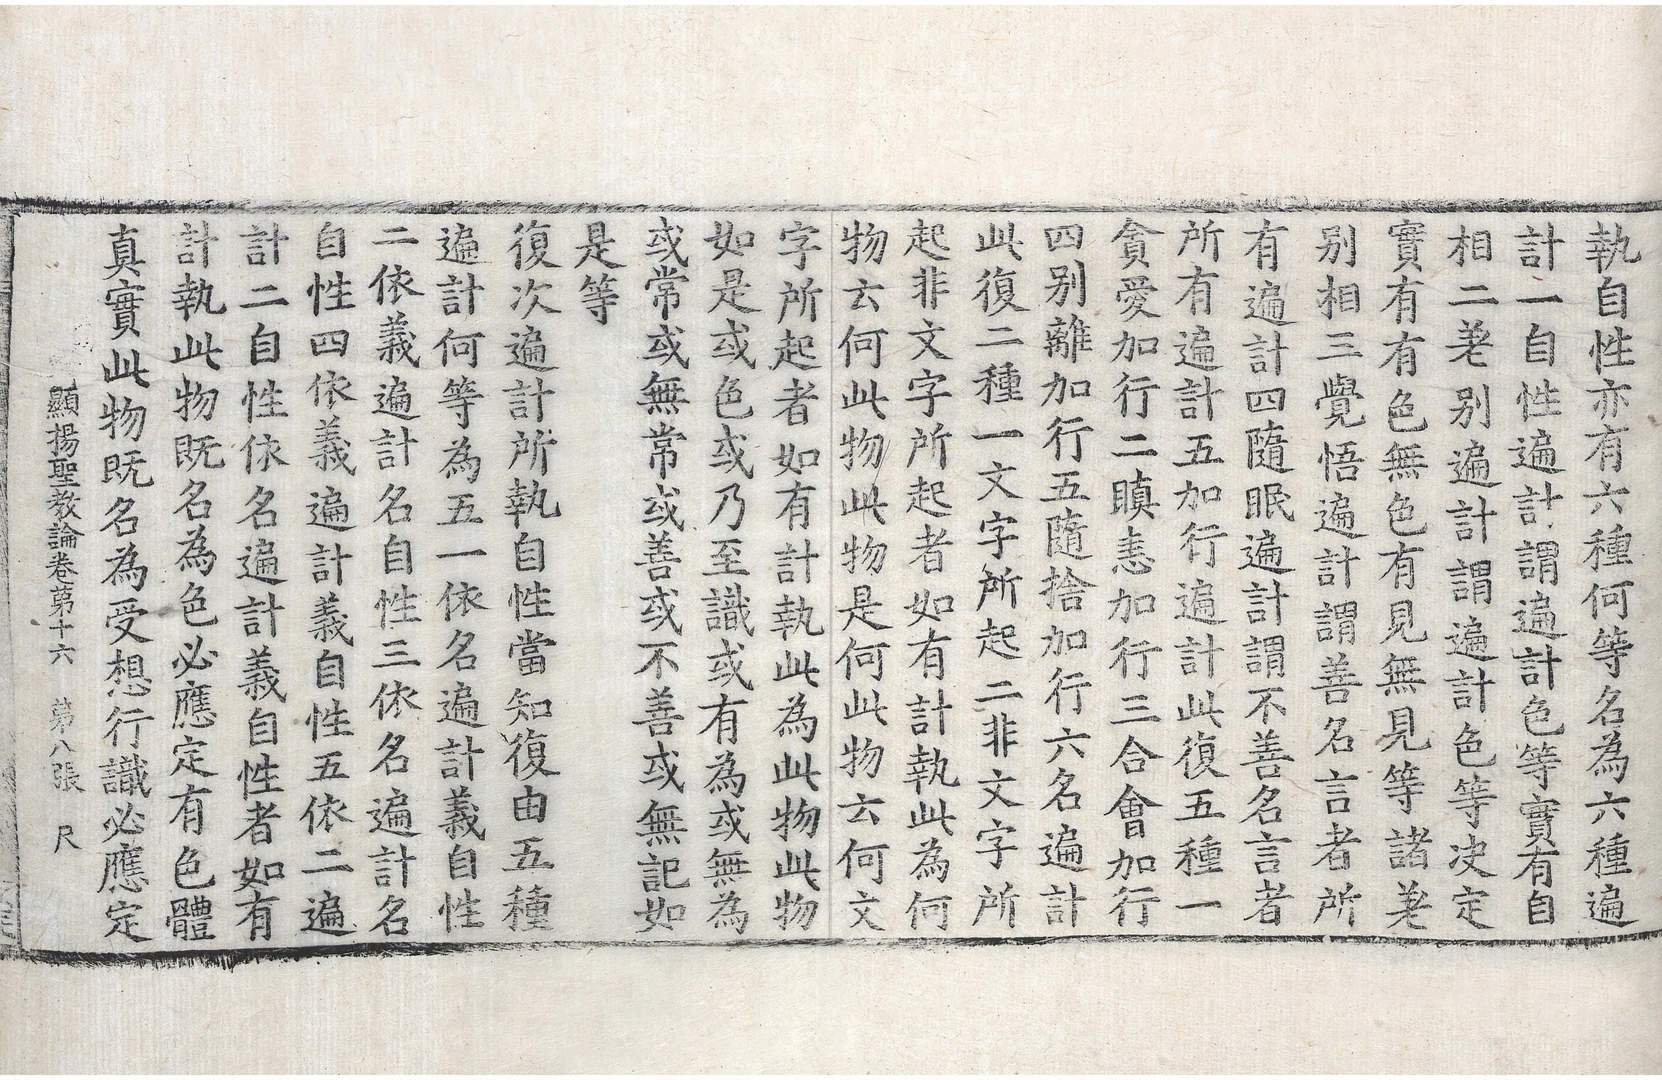 執自性亦有六種何等名為六種遍
計一自性遍計謂遍計色等實有自
相二差别遍計謂遍計色等决定
實有有色無色有見無見等諸差
别相三覺悟遍計謂善名言者所
有遍計四隨眠遍計謂不善名言者
所有遍計五加行遍計此復五種一
貪愛加行二瞋恚加行三合會加行
四别離加行五隨捨加行六名遍計
此復二種一文字所起二非文字所
起非文字所起者如有計執此為何
物云何此物此物是何此物云何文
字所起者如有計執此為此物此物
如是或色或乃至識或有為或無為
或常或無常或善或不善或無記如
是等
復次遍計所執自性當知復由五種
遍計何等為五一依名遍計義自性
二依義遍計名自性三依名遍計名
自性四依義遍計義自性五依二遍
計二自性依名遍計義自性者如有
計執此物既名為色必應定有色體
真實此物既名為受想行識必應定
顯揚聖教論卷第十六 第八張 尺